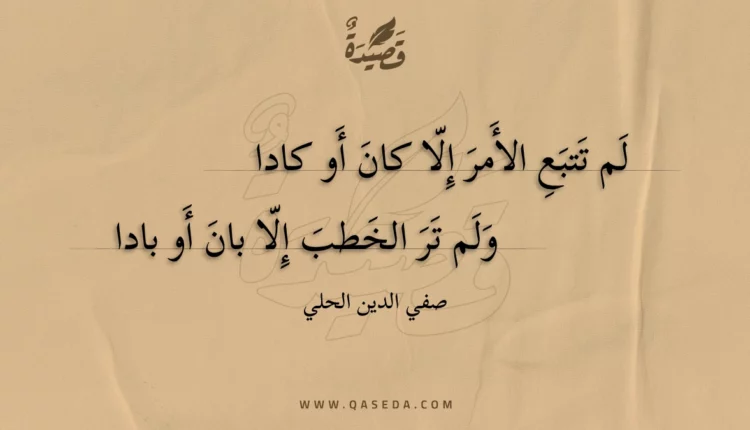 قَصِيْدَةٌ
لَم تَتبَعِ الأَمرَ إِلّا كانَ أَو كادا
وَلَم تَرَ الخَطبَ إِلّا بانَ أَو بادا
صفي الدين الحلي
WWW.QASEDA.COM